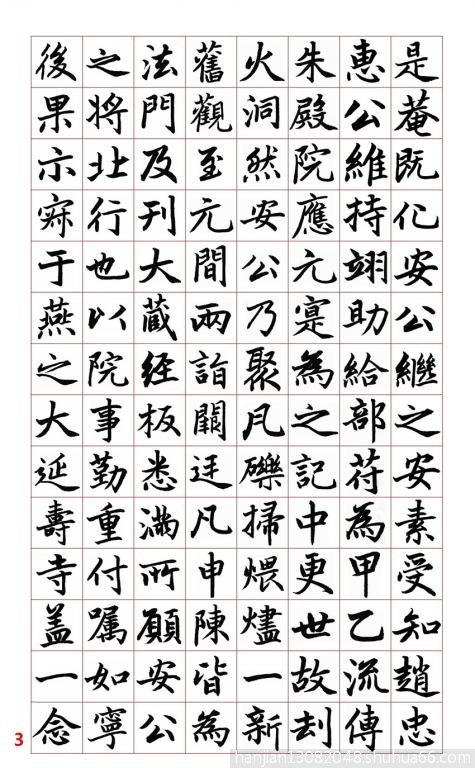 是菴既化安公繼之安素受知趙忠
惠公維持翊助給部苻為甲乙流傳
朱殿院應元寔為之記中更世故刦
火洞然安公乃聚瓦礫掃煨燼一新
舊觀至元間兩詣闕廷凡申陳皆為
法門及刊大藏經板悉滿所願安公
之將北行也以院事勤重付嘱如寧
後果示寂于燕之大延壽寺盖一念
3
hanjian13082048.shuhua66.com